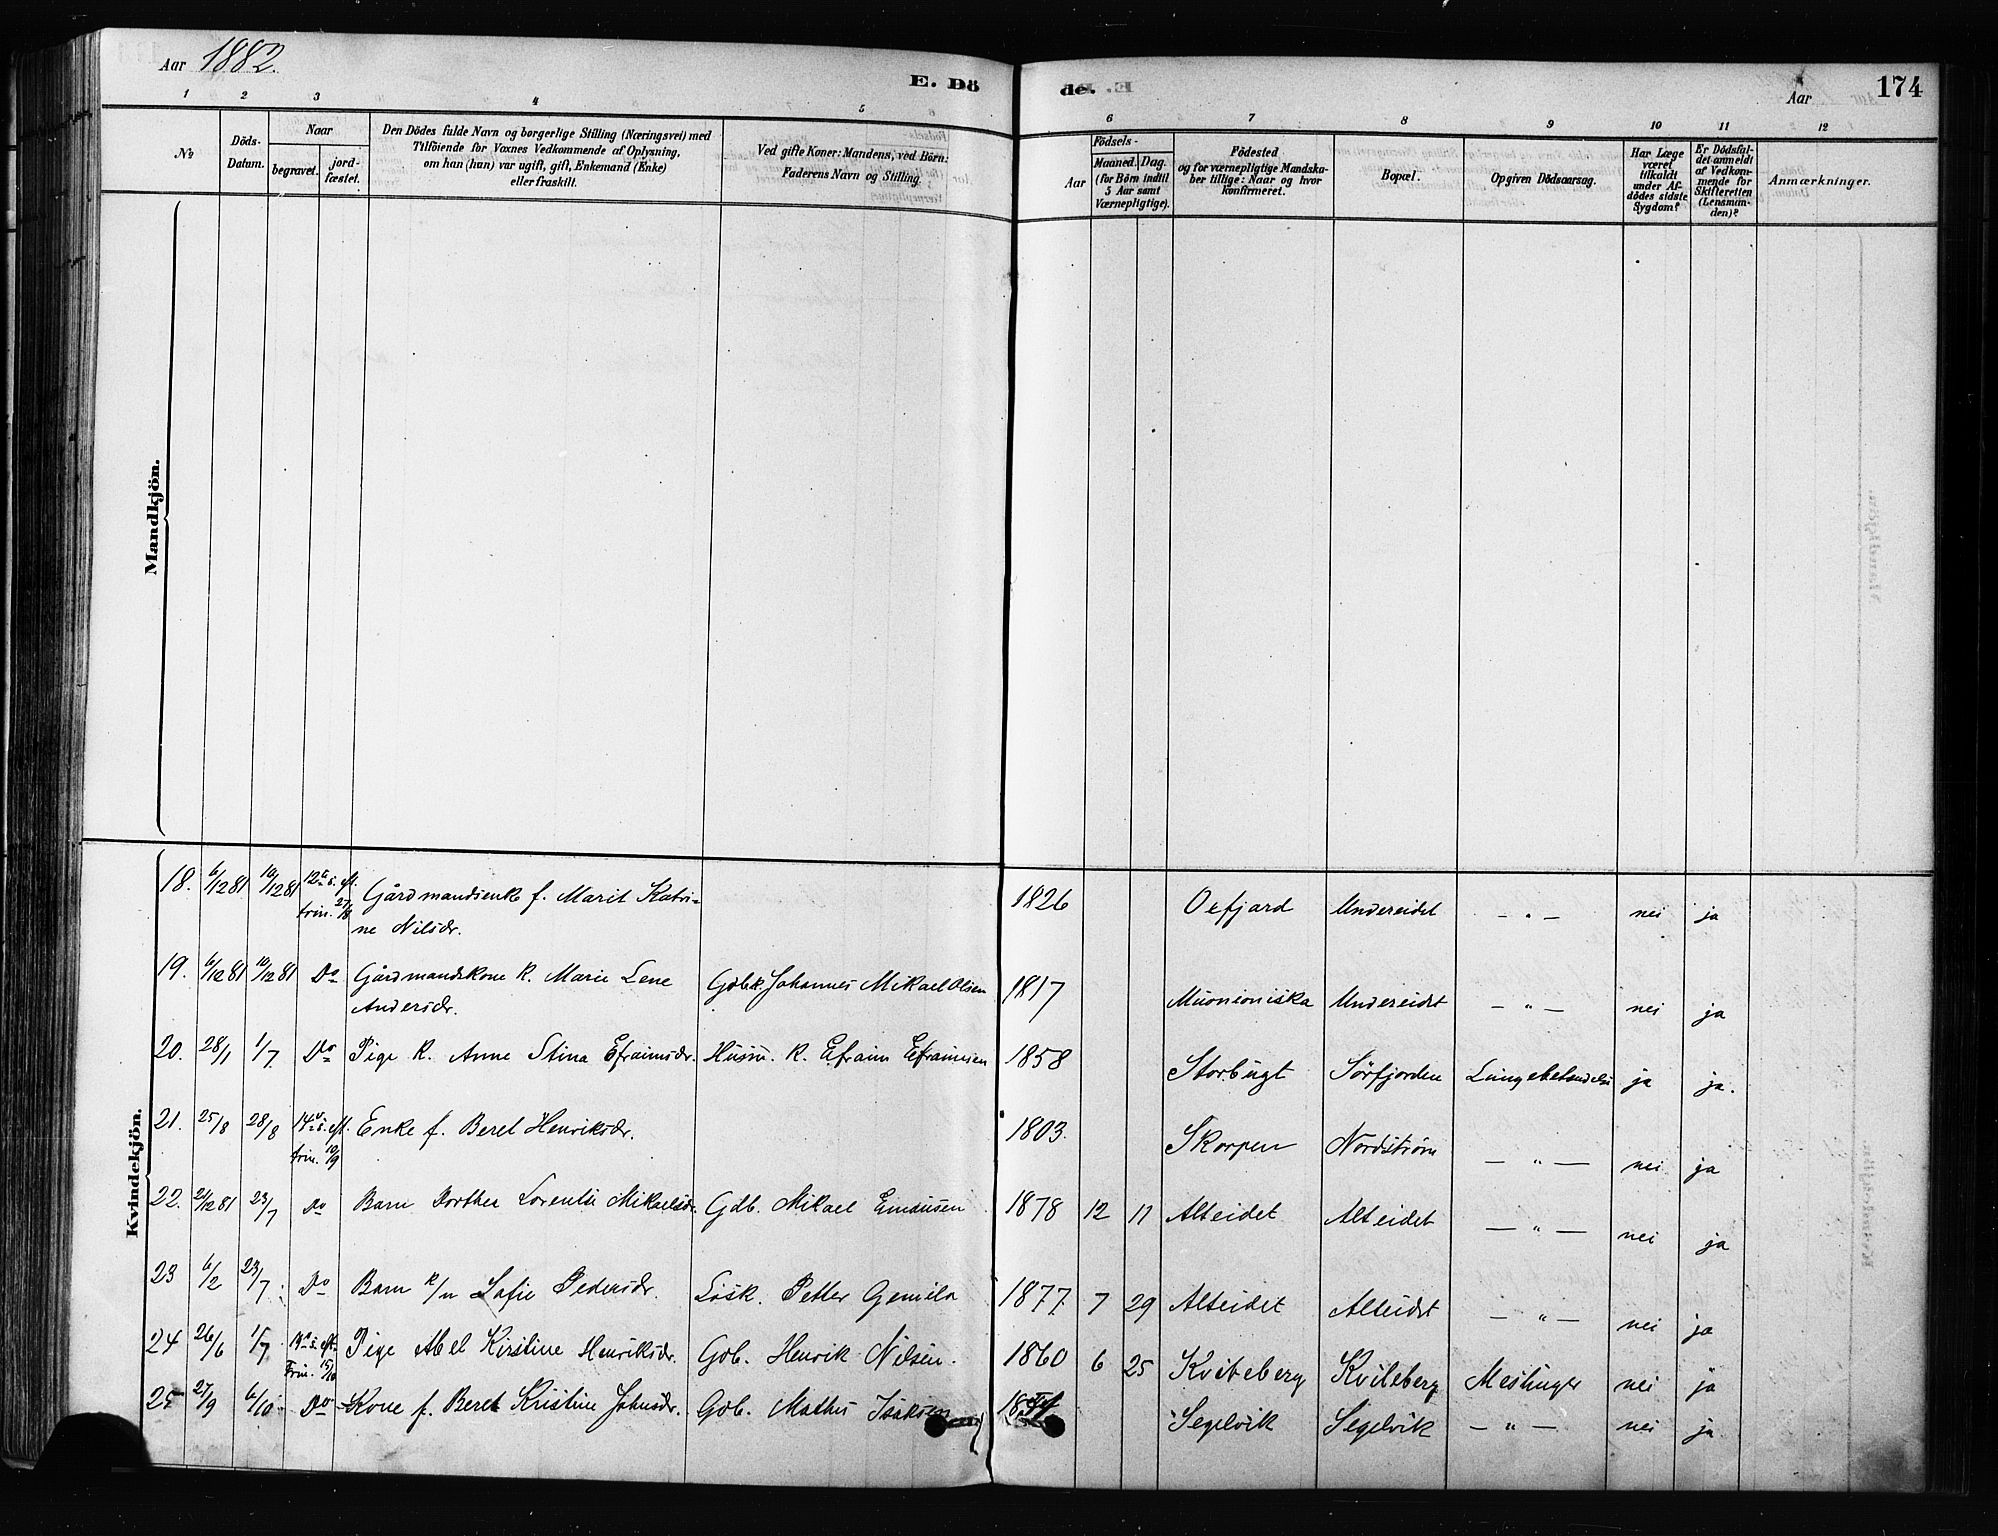 Aar 1882.
E. Dö
de.
Aar
174
1 2 3 4 5 6 7 8 9 10 11 12
No
Döds-
Datum.
Naar
begravet.
jord-
fæstet.
Den Dödes fulde Navn og borgerlige Stilling (Næringsvei) med
Tilföiende for Voxnes Vedkommende af Oplysning,
om han (hun) var ugift, gift, Enkemand (Enke)
eller fraskilt.
Ved gifte Koner: Mandens, ved Börn:
Faderens Navn og Stilling.
Födsels-
Aar
Maaned. Dag.
(for Börn indtil
5 Aar samt
Værnepligtige).
Födested
og for værnepligtige Mandska-
ber tillige: Naar og hvor
konfirmeret.
Bopæl.
Opgiven Dödsaarsag.
Har Læge
været
tilkaldt
under Af-
dödes sidste
Sygdom?
Er Dödsfal-
det anmeldt
af Vedkom-
mende for
Skifteretten
(Lensman-
den)?
Anmærkninger.
Mandkjön.
Kvindekjön.
18. 6/12 81 10/12 81 Gårdmandsenke f. Marit Katri- 1826 Oxfjord Undereidet — " — nei ja
trin. 27/8 ne Nilsdr.
19. 6/12 81 10/12 81 Do Gårdmandskone k. Marie Lene Gdb. k. Johannes Mikael Olsen 1817 Muonioniska Undereidet — " — nei ja
Andersdr.
20. 28/1 1/7 Do Pige k. Anne Stina Efraimsdr. Husm. k. Efraim Efraimsen 1858 Storbugt Sörfjorden Lungebetændelse ja ja.
21. 25/8 28/8 14 s. eft. Enke f. Beret Henriksdr. 1803. Skorpen Nordström — " — nei ja
trin. 10/9
22. 21/12 81 23/7 Do Barn Dorthea Lorentse Mikaelsdr. Gdb. Mikael 1878 12 11 Alteidet Alteidet — " — nei ja
23 6/2 23/7 Do Barn k/n Sofie Pedersdr. Lösk. Petter Gemila 1877 7 29 Alteidet Alteidet — " — nei ja
24 26/6 1/7 Pige Abel Kirstine Henriksdr. Gdb. Henrik Nilsen. 1860 6 25 Kviteberg Kviteberg Meslinger nei ja
Trin. 15/10
25 27/9 6/10 Do Kone f. Beret Kristine Johnsdr. Gdb. Mathis Isaksen Segelvik Segelvik — " — nei ja